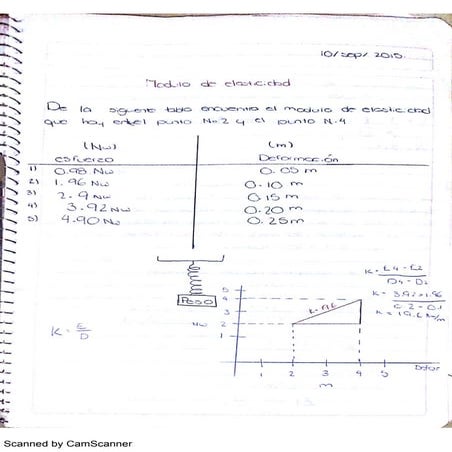 10/sep/2015
Modulo de elasticidad
De la siguiente tabla encuentra el modulo de elasticidad
que hay en el punto No.2 y el punto N.4
(Nw) (m)
esfuerzo Deformación
1) 0.98 Nw 0.05 m
2) 1.96 Nw 0.10 m
3) 2.9 Nw 0.15 m
4) 3.92 Nw 0.20 m
5) 4.90 Nw 0.25 m
PESO
K = E/D
K = E4-E2
D4-D2
K = 3.92-1.96
0.2-0.1
K = 19.6
Nw
5
4
3
2
1
1 2 3 4 5
m
Scanned by CamScanner